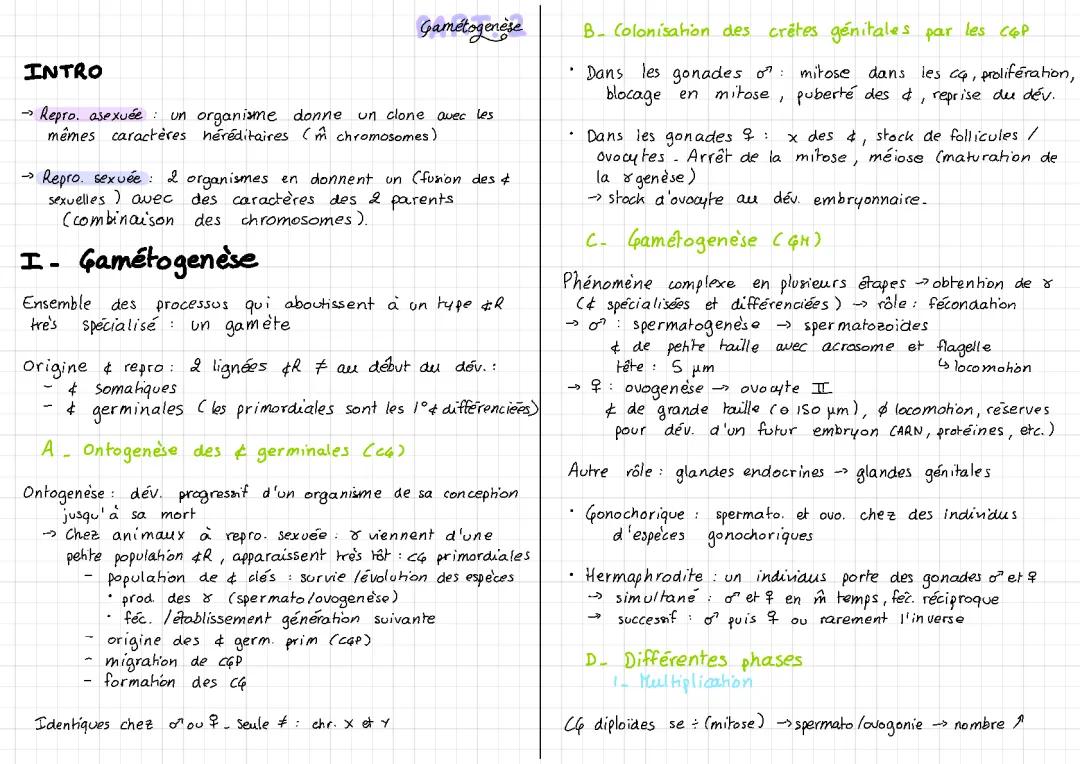 Gamétogenèse
INTRO
→ Repro. asexuée : un organisme donne un clone avec les
mêmes caractères héréditaires (m̂ chromosomes)
→ Repro. sexuée : 2 organismes en donnent un (fusion des ¢
sexuelles) avec des caractères des 2 parents
(combinaison des chromosomes).
I - Gamétogenèse
Ensemble des processus qui aboutissent à un type ¢R
très spécialisé : un gamète
Origine ¢ repro : 2 lignées ¢R ≠ au début du dév. :
- ¢ somatiques
- ¢ germinales (les primordiales sont les 1° ¢ différenciées)
A - Ontogenèse des ¢ germinales (CG)
Ontogenèse : dév. progressif d'un organisme de sa conception
jusqu'à sa mort
→ Chez animaux à repro. sexuée : γ viennent d'une
petite population ¢R, apparaissent très tôt : CG primordiales
- population de ¢ clés : survie / évolution des espèces
• prod. des γ (spermato/ovogenèse)
• féc. / établissement génération suivante
- origine des ¢ germ. prim (CGP)
- migration de CGP
- formation des CG
Identiques chez ♂ ou ♀ - Seule ≠ : chr. X et Y
B - Colonisation des crêtes génitales par les CGP
• Dans les gonades ♂ : mitose dans les CG, prolifération,
blocage en mitose, puberté des ¢, reprise du dév.
• Dans les gonades ♀ : x des ¢, stock de follicules /
ovocytes - Arrêt de la mitose, méiose (maturation de
la γgenèse)
→ stock d'ovocyte au dév. embryonnaire.
C - Gamétogenèse (GM)
Phénomène complexe en plusieurs étapes → obtention de γ
(¢ spécialisées et différenciées) → rôle : fécondation
→ ♂ : spermatogenèse → spermatozoïdes
¢ de petite taille avec acrosome et flagelle
tête : 5 μm ↳ locomotion
→ ♀ : ovogenèse → ovocyte II
¢ de grande taille (⌀ 150 μm), ∅ locomotion, réserves
pour dév. d'un futur embryon (ARN, protéines, etc.)
Autre rôle : glandes endocrines → glandes génitales
• Gonochorique : spermato. et ovo. chez des individus
d'espèces gonochoriques
• Hermaphrodite : un individus porte des gonades ♂ et ♀
→ simultané : ♂ et ♀ en m̂ temps, féc. réciproque
→ successif : ♂ puis ♀ ou rarement l'inverse
D - Différentes phases
1 - Multiplication
CG diploïdes se ÷ (mitose) → spermato/ovogonie → nombre ↗